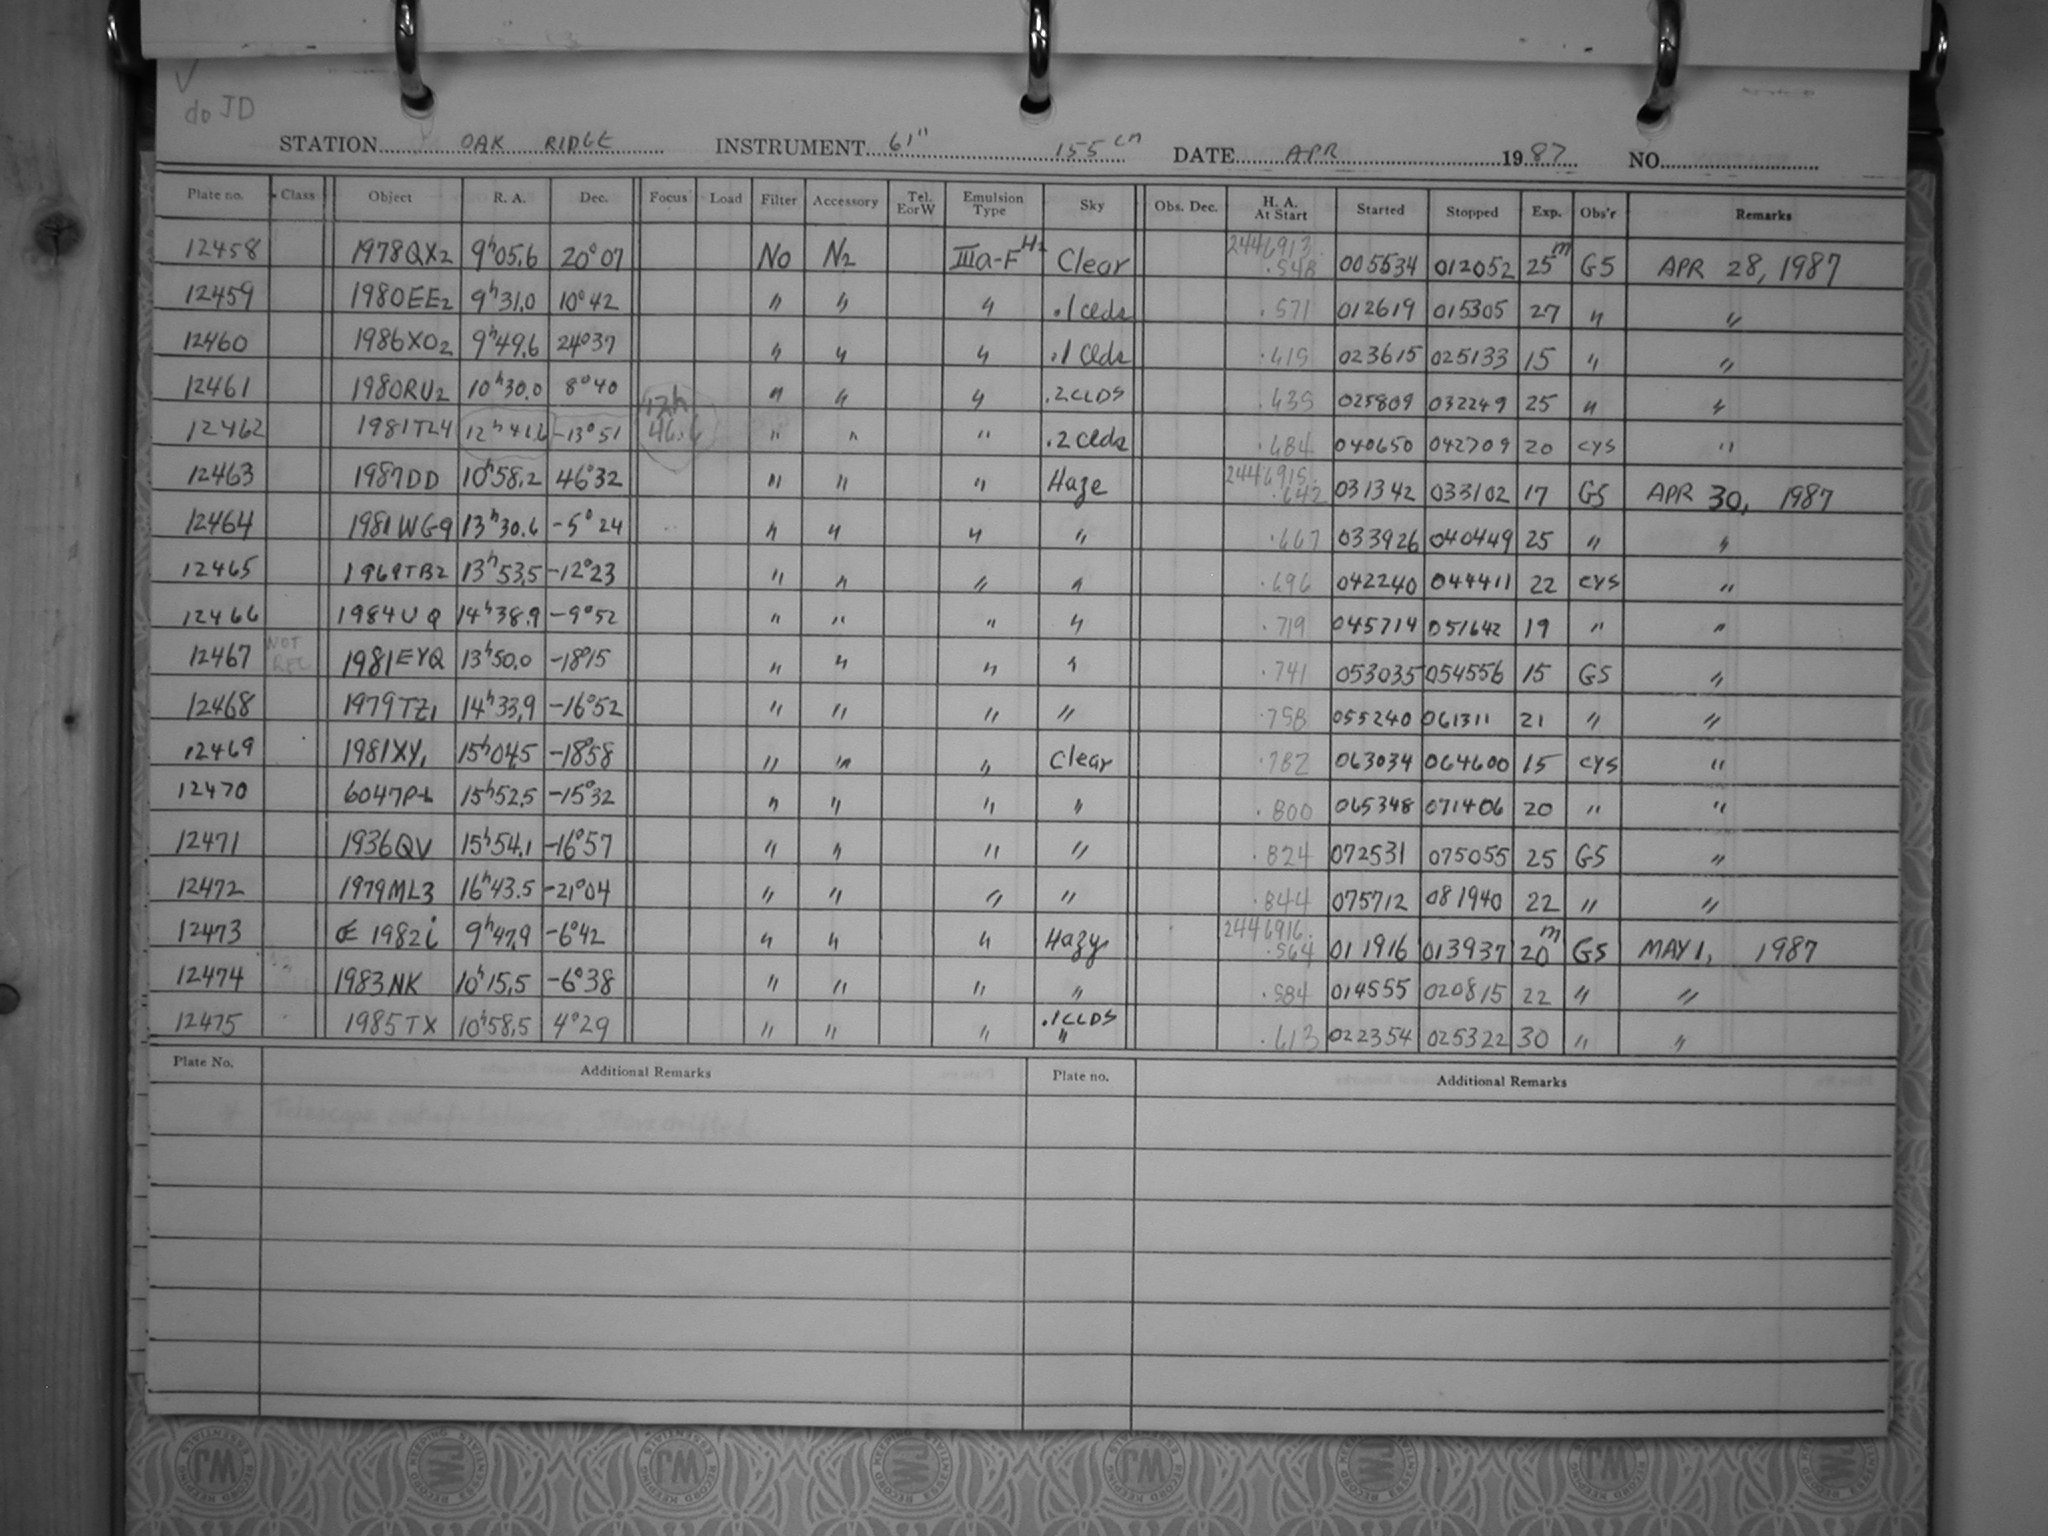 do JD
STATION OAK RIDGE INSTRUMENT 61" 155 cm DATE APR 1987 NO.
Plate no. Class Object R. A. Dec. Focus Load Filter Accessory Tel. E or W Emulsion Type Sky Obs. Dec. H. A. At Start Started Stopped Exp. Obs'r Remarks
12458 1978QX2 9h05.6 20°07 No N2 IIIa-F H2 Clear 2446913. .548 005534 012052 25m GS APR 28, 1987
12459 1980EE2 9h31.0 10°42 " " " .1 clds .571 012619 015305 27 " "
12460 1986XO2 9h49.6 24°37 " " " .1 clds .619 023615 025133 15 " "
12461 1980RU2 10h30.0 8°40 " " " .2CLDS .635 025809 032249 25 " "
12462 1981TZ4 12h41.6 -13°51 12h " " " .2 clds .684 040650 042709 20 CYS "
12463 1987DD 10h58.2 46°32 " " " Haze 2446915. .642 031342 033102 17 GS APR 30, 1987
12464 1981WG9 13h30.6 -5°24 " " " " .667 033926 040449 25 " "
12465 1969TB2 13h53.5 -12°23 " " " " .696 042240 044411 22 CYS "
12466 1984UQ 14h38.9 -9°52 " " " " .719 045714 051642 19 " "
12467 NOT REC 1981EYQ 13h50.0 -18°15 " " " " .741 053035 054556 15 GS "
12468 1979TZ1 14h33.9 -16°52 " " " " .758 055240 061311 21 " "
12469 1981XY1 15h04.5 -18°58 " " " Clear .782 063034 064600 15 CYS "
12470 6047P-L 15h52.5 -15°32 " " " " .800 065348 071406 20 " "
12471 1936QV 15h54.1 -16°57 " " " " .824 072531 075055 25 GS "
12472 1979ML3 16h43.5 -21°04 " " " " .844 075712 081940 22 " "
12473 1982i 9h47.9 -6°42 " " " Hazy 2446916. .564 011916 013937 20m GS MAY 1, 1987
12474 1983NK 10h15.5 -6°38 " " " " .584 014555 020815 22 " "
12475 1985TX 10h58.5 4°29 " " " .1CLDS " .613 022354 025322 30 " "
Plate No. Additional Remarks Plate no. Additional Remarks